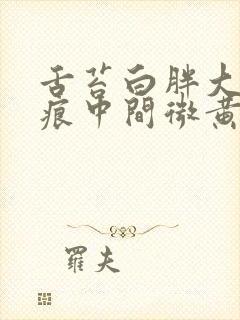 舌苔白胖大
痕中間微黃
羅夫